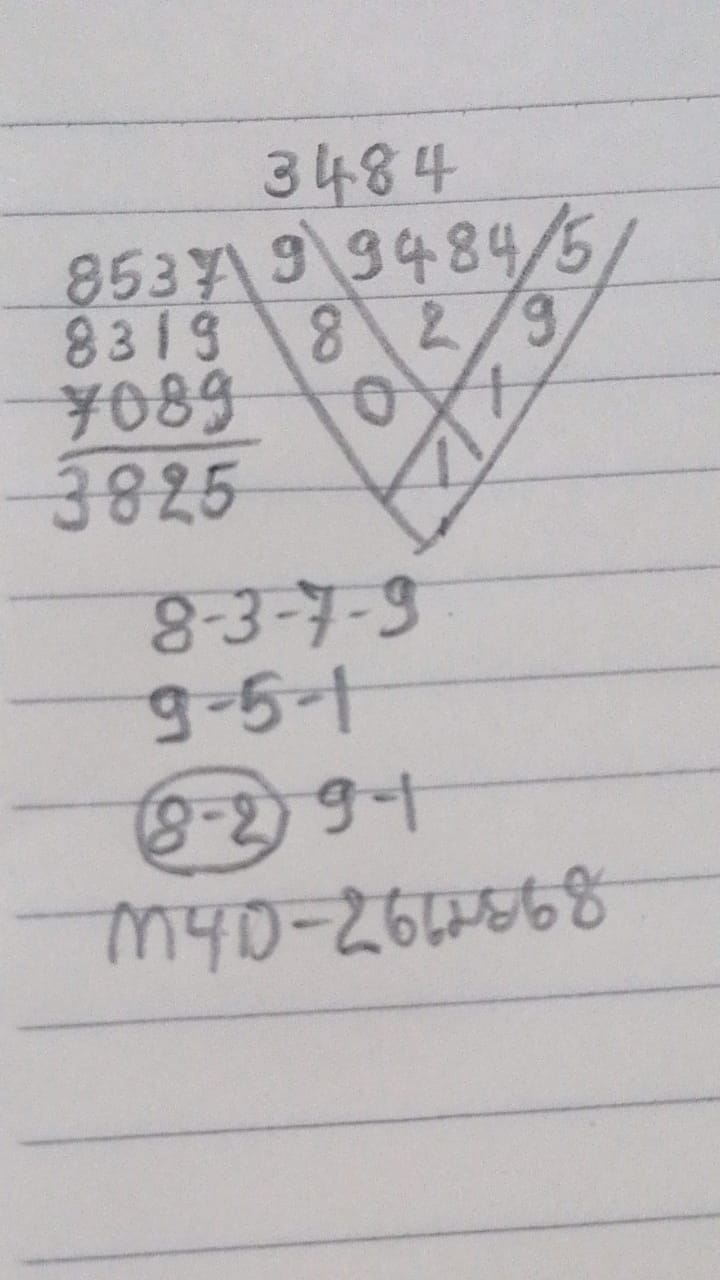 3484
8537 9 9484 5
8319 8 2 9
7089 0 1
3825 1
8-3-7-9
9-5-1
8-2 9-1